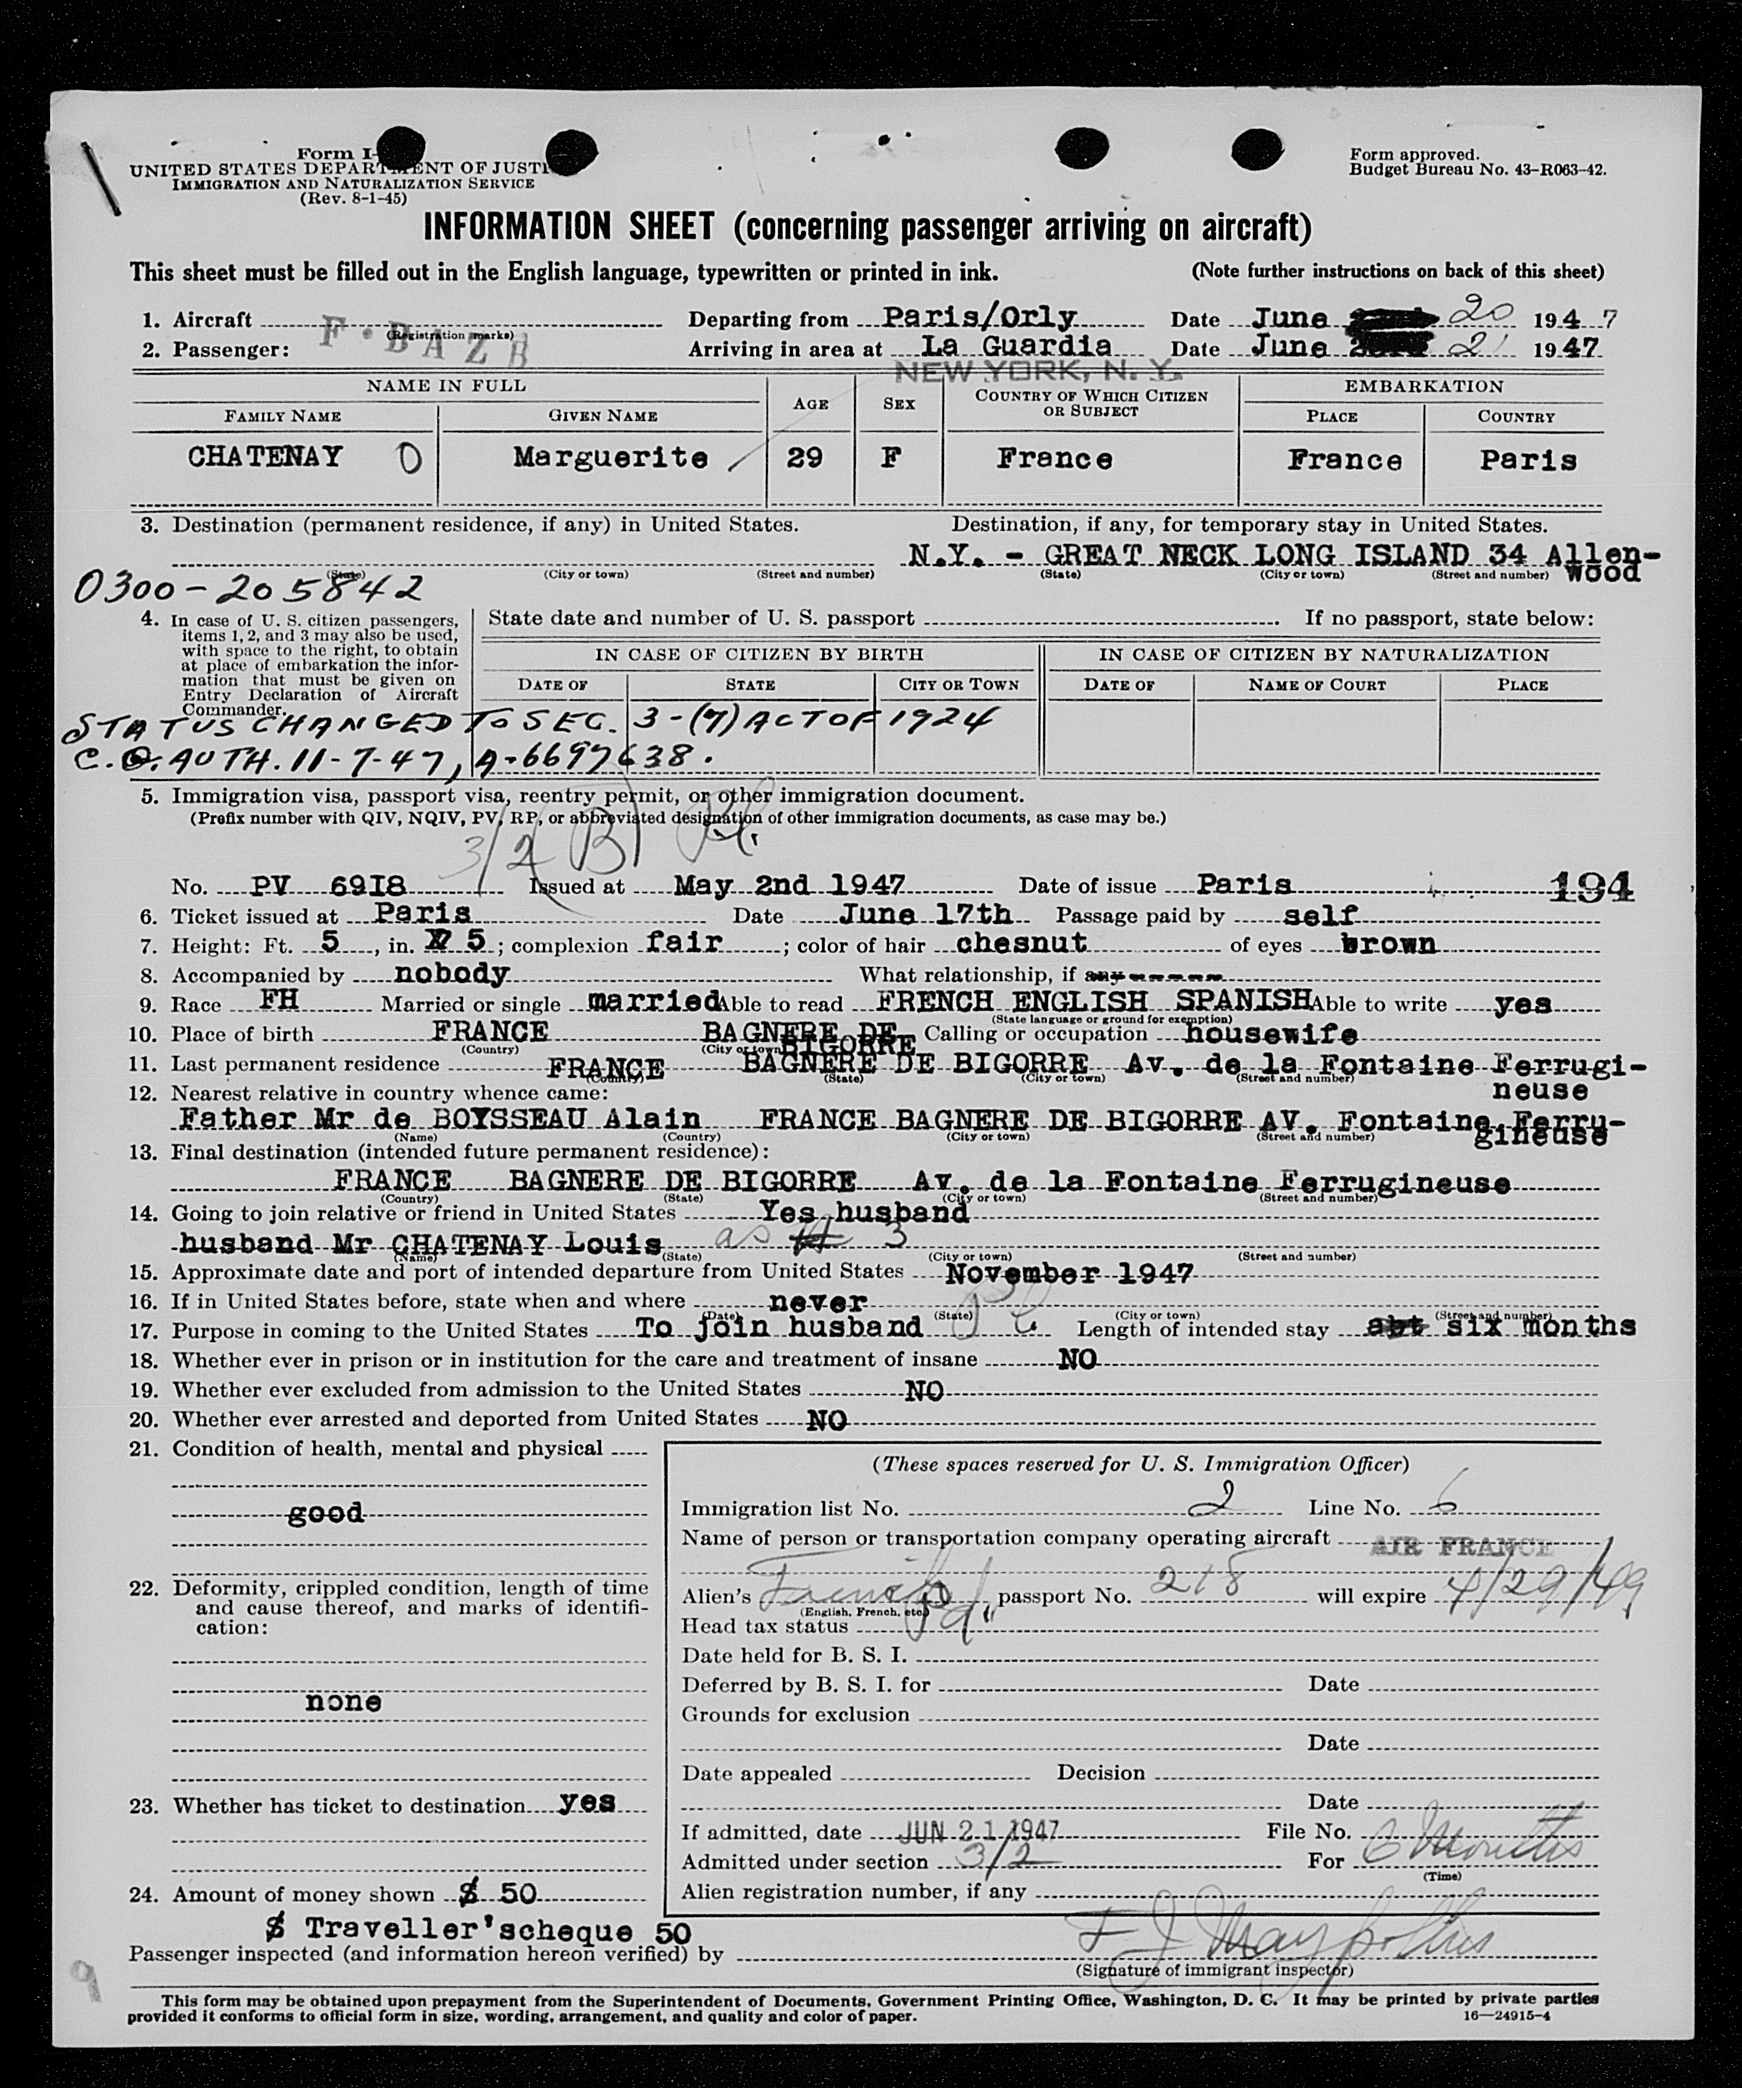 Form I-
UNITED STATES DEPARTMENT OF JUSTI
IMMIGRATION AND NATURALIZATION SERVICE
(Rev. 8-1-45)
Form approved.
Budget Bureau No. 43-R063-42.
INFORMATION SHEET (concerning passenger arriving on aircraft)
This sheet must be filled out in the English language, typewritten or printed in ink. (Note further instructions on back of this sheet)
1. Aircraft F-BAZB (Registration marks) Departing from Paris/Orly Date June 20 1947
2. Passenger: Arriving in area at La Guardia Date June 21 1947
NEW YORK, N. Y.
NAME IN FULL AGE SEX COUNTRY OF WHICH CITIZEN OR SUBJECT EMBARKATION
FAMILY NAME GIVEN NAME PLACE COUNTRY
CHATENAY 0 Marguerite 29 F France France Paris
3. Destination (permanent residence, if any) in United States. Destination, if any, for temporary stay in United States.
N.Y. - GREAT NECK LONG ISLAND 34 Allen-
wood
(State) (City or town) (Street and number) (State) (City or town) (Street and number)
0300-205842
4. In case of U. S. citizen passengers, items 1, 2, and 3 may also be used, with space to the right, to obtain at place of embarkation the information that must be given on Entry Declaration of Aircraft Commander.
State date and number of U. S. passport If no passport, state below:
IN CASE OF CITIZEN BY BIRTH IN CASE OF CITIZEN BY NATURALIZATION
DATE OF STATE CITY OR TOWN DATE OF NAME OF COURT PLACE
STATUS CHANGED TO SEC. 3-(7) ACT OF 1924
C.O. AUTH. 11-7-47, A-6697638.
5. Immigration visa, passport visa, reentry permit, or other immigration document.
(Prefix number with QIV, NQIV, PV, RP, or abbreviated designation of other immigration documents, as case may be.)
3/2 (B)
No. PV 69I8 Issued at May 2nd 1947 Date of issue Paris 194
6. Ticket issued at Paris Date June 17th Passage paid by self
7. Height: Ft. 5, in. 5; complexion fair; color of hair chesnut of eyes brown
8. Accompanied by nobody What relationship, if any -----
9. Race FH Married or single married Able to read FRENCH ENGLISH SPANISH Able to write yes
(State language or ground for exemption)
10. Place of birth FRANCE BAGNERE DE BIGORRE Calling or occupation housewife
(Country) (City or town)
11. Last permanent residence FRANCE BAGNERE DE BIGORRE Av. de la Fontaine Ferrugi-
neuse
(Country) (State) (City or town) (Street and number)
12. Nearest relative in country whence came:
Father Mr de BOYSSEAU Alain FRANCE BAGNERE DE BIGORRE AV. Fontaine Ferru-
gineuse
(Name) (Country) (City or town) (Street and number)
13. Final destination (intended future permanent residence):
FRANCE BAGNERE DE BIGORRE Av. de la Fontaine Ferrugineuse
(Country) (State) (City or town) (Street and number)
14. Going to join relative or friend in United States Yes husband
husband Mr CHATENAY Louis as 3
(Name) (State) (City or town) (Street and number)
15. Approximate date and port of intended departure from United States November 1947
16. If in United States before, state when and where never
(Date) (State) (City or town) (Street and number)
17. Purpose in coming to the United States To join husband Length of intended stay abt six months
18. Whether ever in prison or in institution for the care and treatment of insane NO
19. Whether ever excluded from admission to the United States NO
20. Whether ever arrested and deported from United States NO
21. Condition of health, mental and physical
good
22. Deformity, crippled condition, length of time and cause thereof, and marks of identification:
none
23. Whether has ticket to destination yes
24. Amount of money shown $ 50
$ Traveller'scheque 50
(These spaces reserved for U. S. Immigration Officer)
Immigration list No. 2 Line No. 6
Name of person or transportation company operating aircraft AIR FRANCE
Alien's French passport No. 218 will expire 4/29/49
(English, French, etc.)
Head tax status
Date held for B. S. I.
Deferred by B. S. I. for Date
Grounds for exclusion
Date
Date appealed Decision
Date
If admitted, date JUN 21 1947 File No.
Admitted under section 3/2 For 6 Months
(Time)
Alien registration number, if any
Passenger inspected (and information hereon verified) by
(Signature of immigrant inspector)
9
This form may be obtained upon prepayment from the Superintendent of Documents, Government Printing Office, Washington, D. C. It may be printed by private parties
provided it conforms to official form in size, wording, arrangement, and quality and color of paper. 16—24915-4